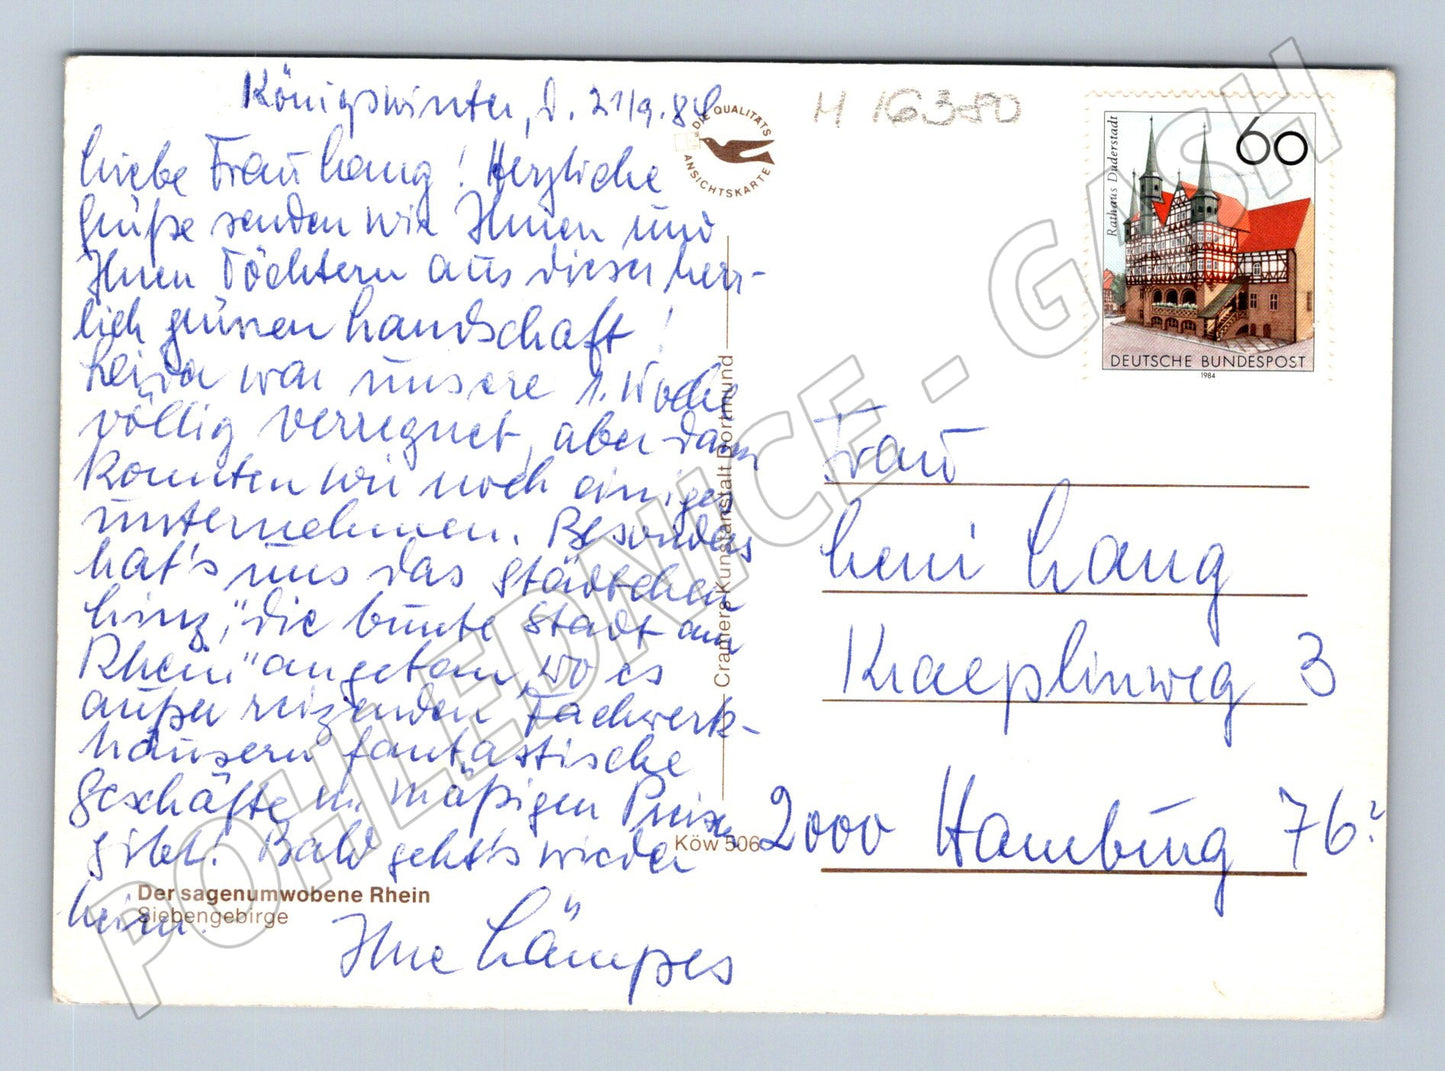 Königswinter, d. 21/9.84
Liebe Frau Lang! Herzliche
Grüße senden wir Ihnen und
Ihren Töchtern aus dieser herr-
lich grünen Landschaft!
Leider war unsere 1. Woche
völlig verregnet, aber dann
konnten wir noch einiges
unternehmen. Besonders
hat's uns das Städtchen
Linz, "die bunte Stadt am
Rhein" angetan, wo es
außer reizenden Fachwerk-
häusern fantastische
Geschäfte m. mäßigen Preisen
gibt. Bald geht's wieder
heim.
Ihre Lämpes
Der sagenumwobene Rhein
Siebengebirge
DIE QUALITÄTS
ANSICHTSKARTE
Cramers Kunstanstalt Dortmund
Köw 506
H 16380
Rathaus Duderstadt
60
DEUTSCHE BUNDESPOST
1984
Frau
Leni Lang
Kraeplinweg 3
2000 Hamburg 76
POHLEDNICE - GASH